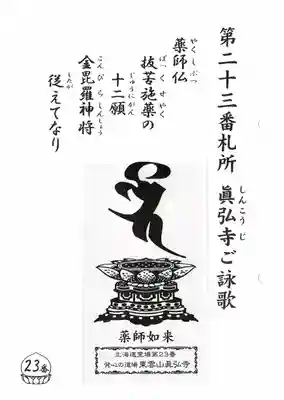 第二十三番札所　眞弘寺ご詠歌
しんこうじ
薬師仏
やくしぶつ
抜苦施薬の
ばっくせやく
十二願
じゅうにがん
金毘羅神将
こんぴらしんしょう
従えてなり
したが
薬師如来
北海道霊場第23番
発心の道場 東雲山眞弘寺
23番